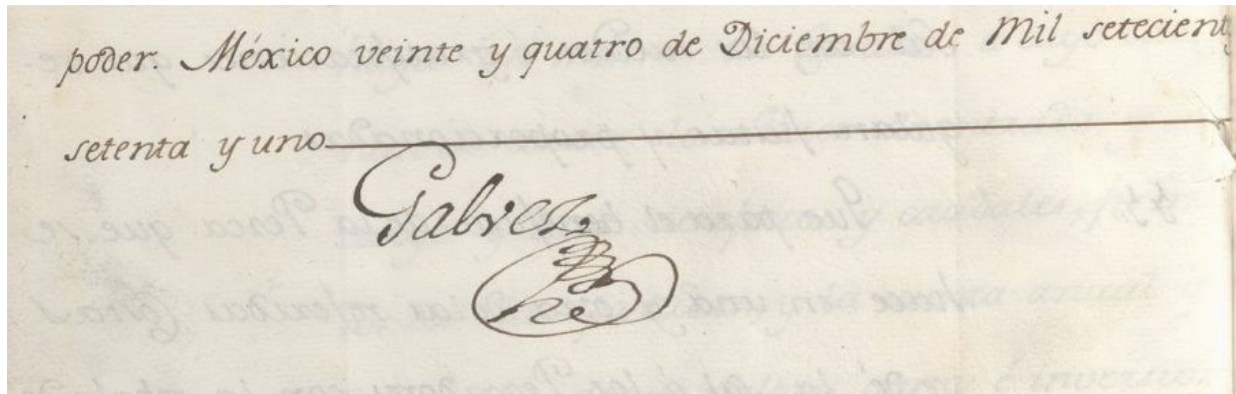 poder. México veinte y quatro de Diciembre de Mil setecient
setenta y uno
Galvez